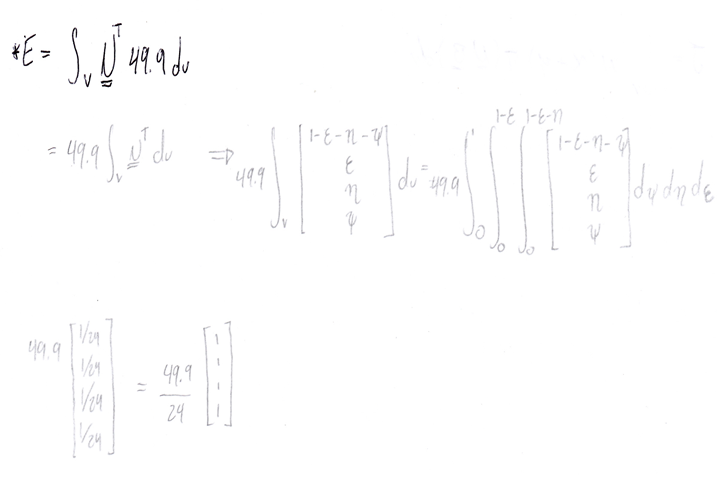 *E = ∫_V N^T 49.9 dv
= 49.9 ∫_V N^T dv ⇒ 49.9 ∫_V [1-ε-η-ψ ; ε ; η ; ψ] dv = 49.9 ∫_0^1 ∫_0^{1-ε} ∫_0^{1-ε-η} [1-ε-η-ψ ; ε ; η ; ψ] dψ dη dε
49.9 [1/24 ; 1/24 ; 1/24 ; 1/24] = 49.9/24 [1 ; 1 ; 1 ; 1]